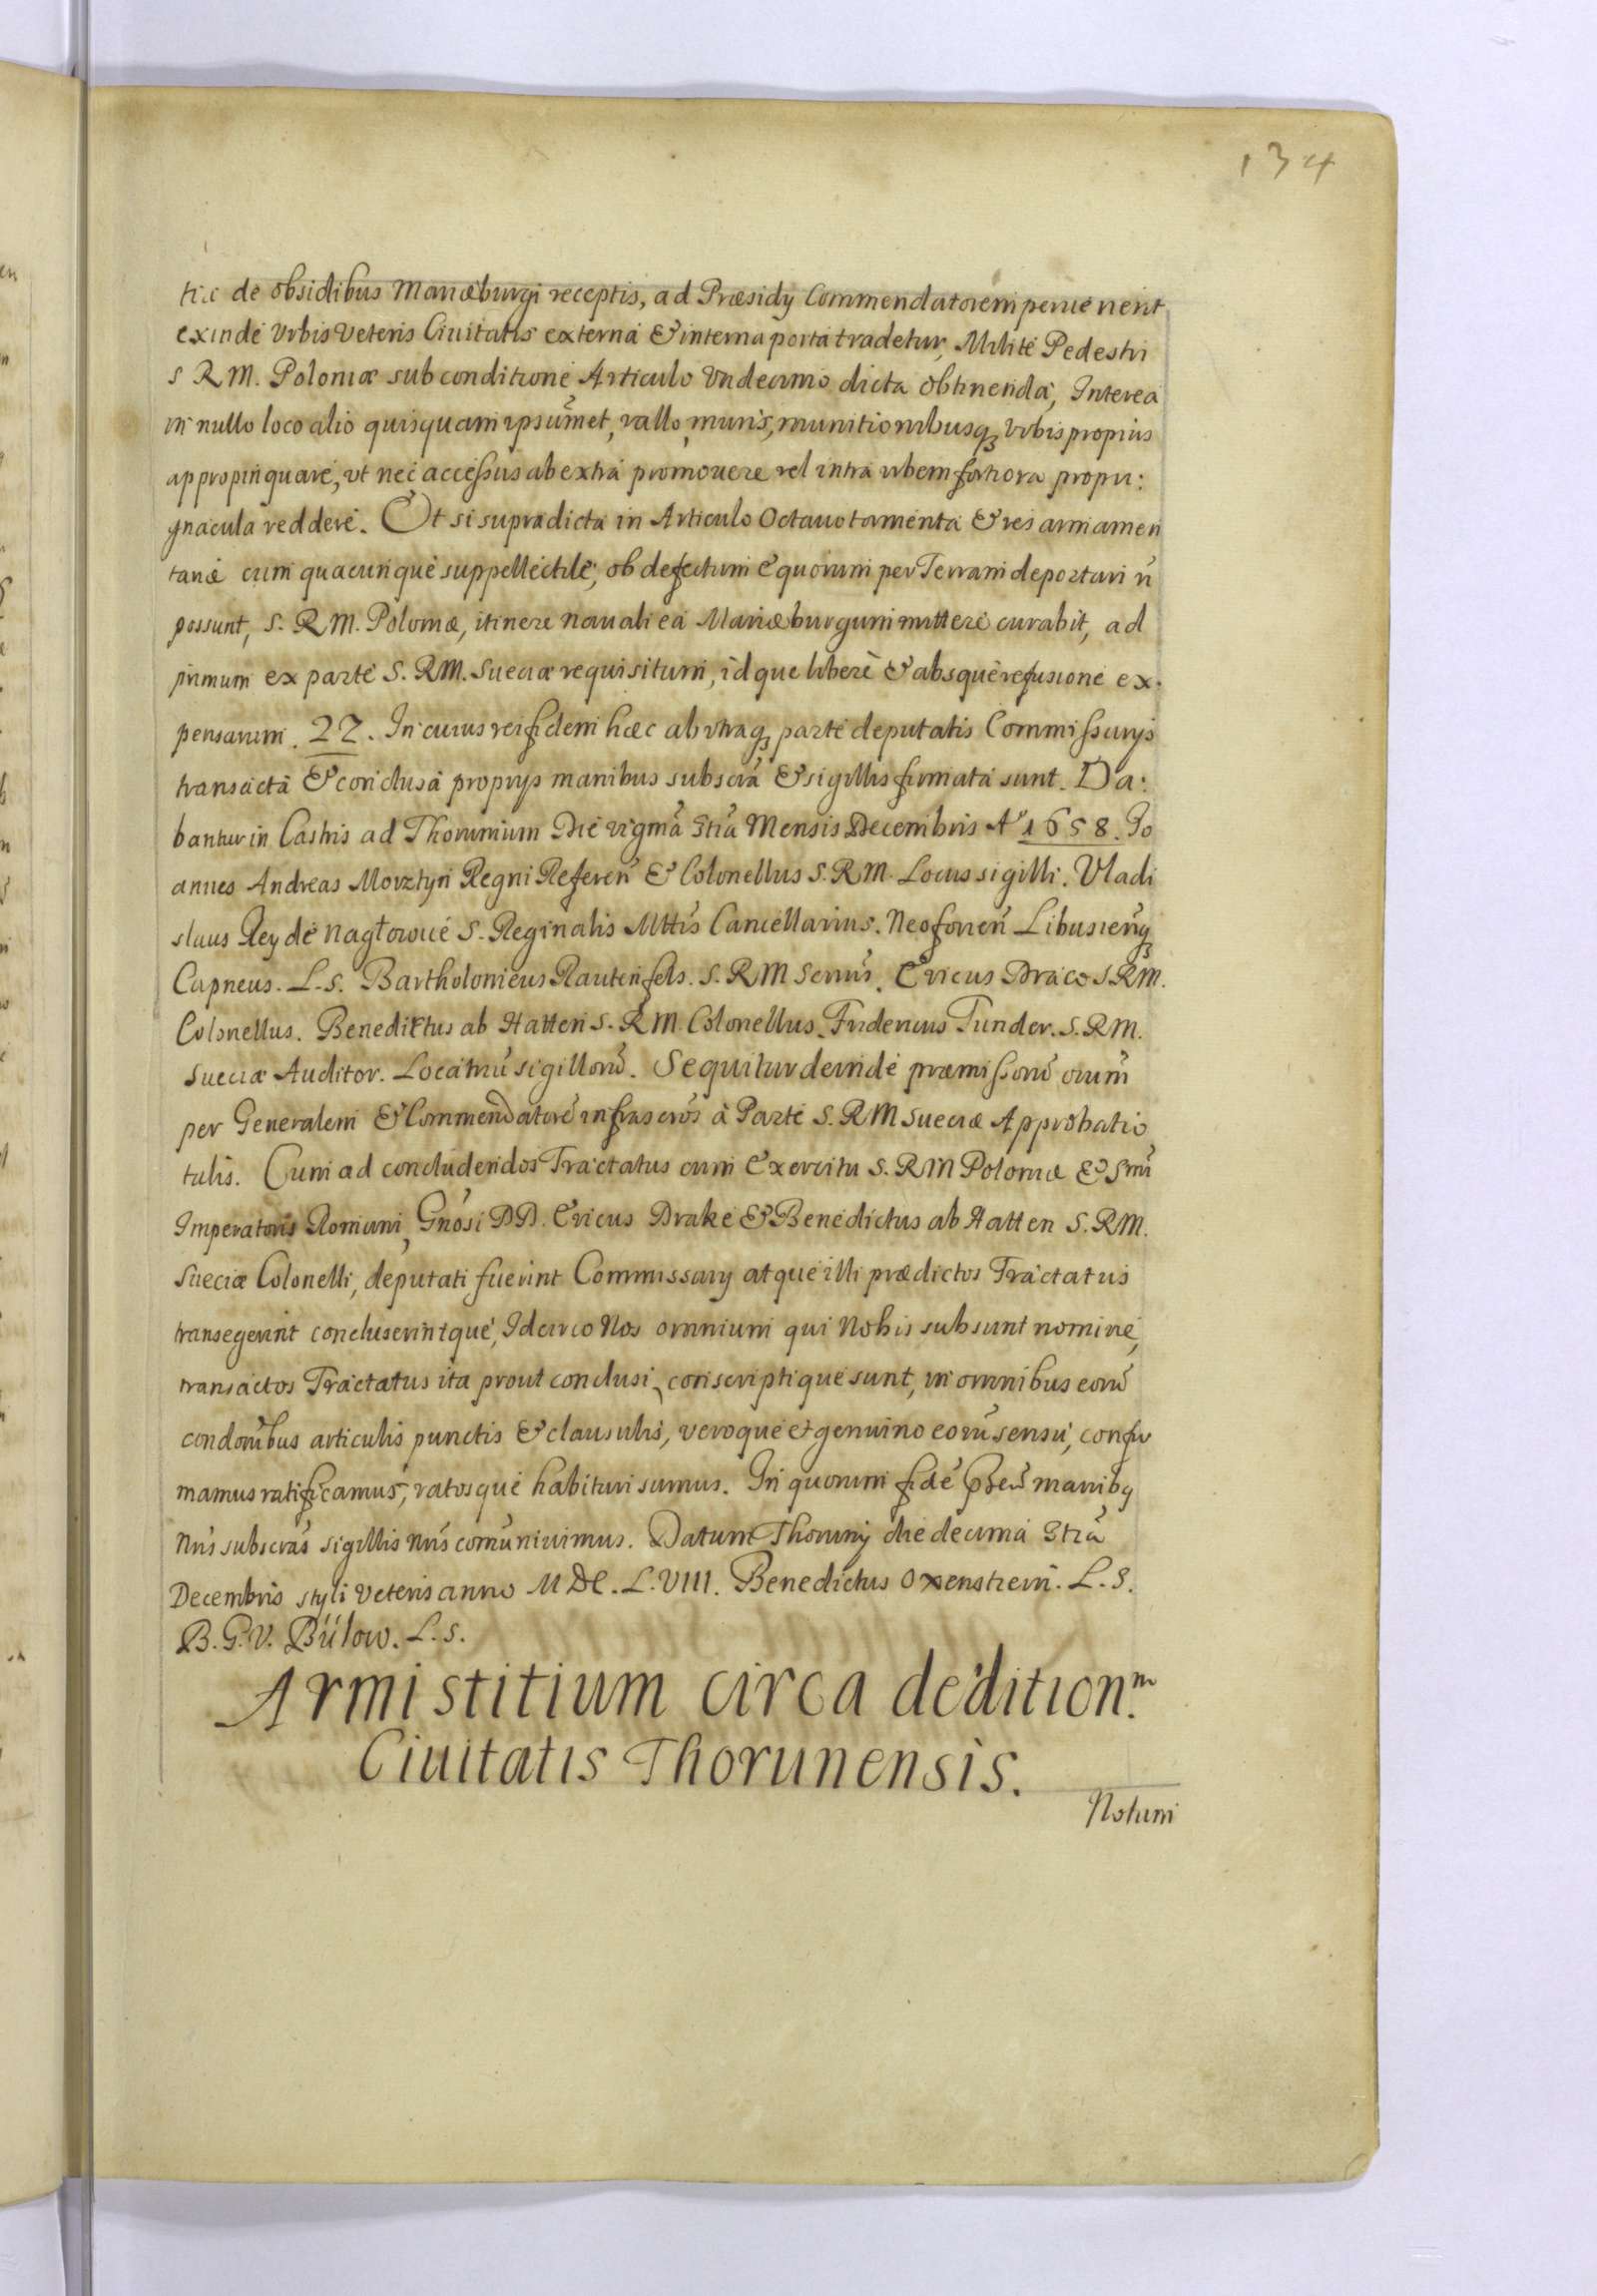 134
tiæ de obsidibus Mariæburgi receptis, ad Præsidy Commendatorem peruenerit
exinde Vrbis Veteris Ciuitatis externa & interna porta tradetur, Milite Pedestri
S RM. Poloniæ sub conditione Articulo Vndecimo dicta obtinenda, Interea
in nullo loco alio quisquam ipsũmet, vallo, muris, munitionibusq, Vrbis propius
appropinquare, vt nec accessus ab extra promouere vel intra vrbem fortiora propu:
gnacula reddere. Et si supradicta in Articulo Octauo tormenta & res armamen
tariæ cum quacunque suppellectile, ob defectum equorum per Terram deportari ñ
possunt, S. RM. Poloniæ, itinere nauali ea Mariæburgum mittere curabit, ad
primum ex parte S. RM. Sueciæ requisitum, idque libere & absque refusione ex.
pensarum. 22. In cuius rei fidem hæc ab vtraq, parte deputatis Commissarijs
transacta & conclusa proprijs manibus subscrã & sigillis firmata sunt. Da:
bantur in Castris ad Thorunium Die vigmã 3tiã Mensis Decembris Aº 1658. Jo
annes Andreas Morztyn Regni Refereñ & Colonellus S. RM. Locus sigilli. Vladi
slaus Rey de Nagłowice S. Reginalis Mttis Cancellarius. Neoforieñ Libusieñq,
Capneus. L.S. Bartholomeus Rautenfels. S. RM Seruus. Ericus Draco S. RM.
Colonellus. Benedictus ab Hatten S. RM. Colonellus. Fridericus Tunder. S. RM.
Sueciæ Auditor. Loca triũ sigillorũ. Sequitur deinde præmissorũ oium
per Generalem & Commendatorẽ infrascros à Parte S. RM Sueciæ Approbatio
talis. Cum ad concludendos Tractatus cum Exercitu S. RM Poloniæ & Smi
Imperatoris Romani, Gnosi DD. Ericus Drake & Benedictus ab Hatten S. RM.
Sueciæ Colonelli, deputati fuerint Commissary atque illi prædictos Tractatus
transegerint concluserintque, Idcirco Nos omnium qui Nobis subsunt nomine,
transactos Tractatus ita prout conclusi, conscriptique sunt, in omnibus eorũ
condonibus articulis punctis & clausulis, veroque et genuino eorũ sensu, confir
mamus ratificamus, ratosque habituri sumus. In quorum fidẽ pñtes manibq
nris subscras sigillis nris comuniuimus. Datum Thoruny die decima 3tiã
Decembris styli Veteris anno MDC.L.VIII. Benedictus Oxenstiern. L.S.
B. G. V. Bülow. L.S.
Armistitium circa dedition.m
Ciuitatis Thorunensis.
Notum